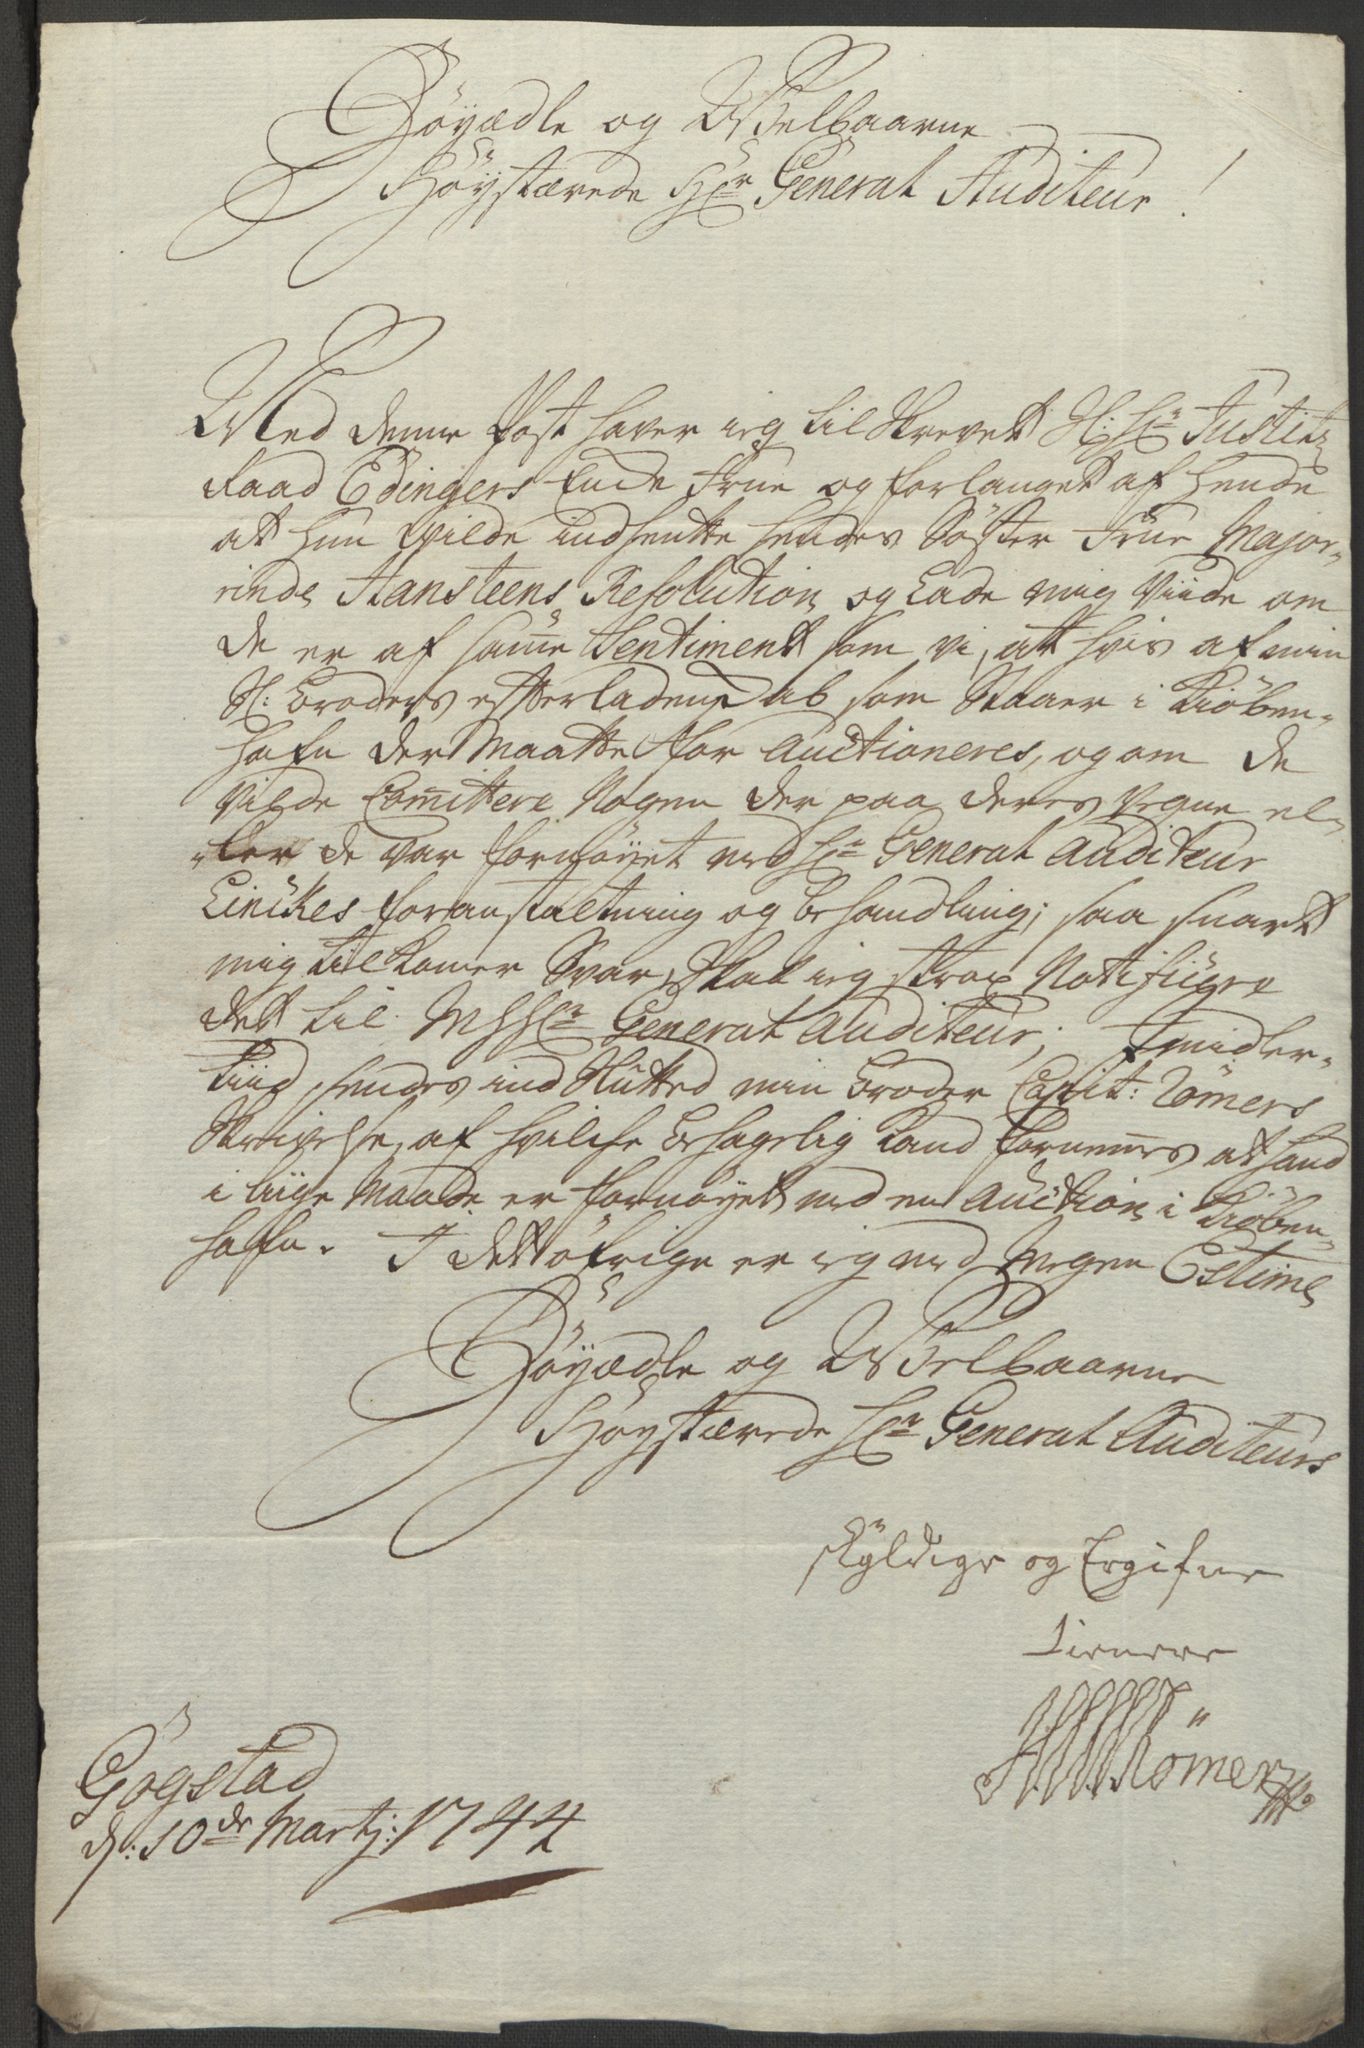 Höyædle og Welbaarne
Höystærede Hr General Auditeur!
Med denne Post haver ieg tilskrevet S: Hr Justitz
Raad Edingers Encke Frue og forlanget af hende
at hun vilde indhente hendes Söster Frue Major-
inde Hansteens Resolution, og Lade mig Viide om
de er af samme Sentiment som vi, at hvis af min
S: Broders efterladenskab som Staaer i Kiöben-
hafn der Maatte for Auctioneres, og om de
Vilde Committere Nogen der paa deres Vegne el-
ler de var fornöyet med Hr General Auditeur
Linckes foranstaltning og behandling; saa snart
mig tilkomer Svar, skal ieg strax Notificere
det til Hr General Auditeur; Imidler-
tiid sendes indslutted min Broder Capit: Römers
Skrivelse, af hvilche behagelig kand fornemmes at hand
i liige Maade er fornöyet med en Auction i Kiöben-
hafn. I det öfrige er ieg med Megen Estime
Höyædle og Welbaarne
Höystærede Hr General Auditeurs
skyldige og Ergifne
tienere
Römer
Gögstad
d: 10de Martj: 1744